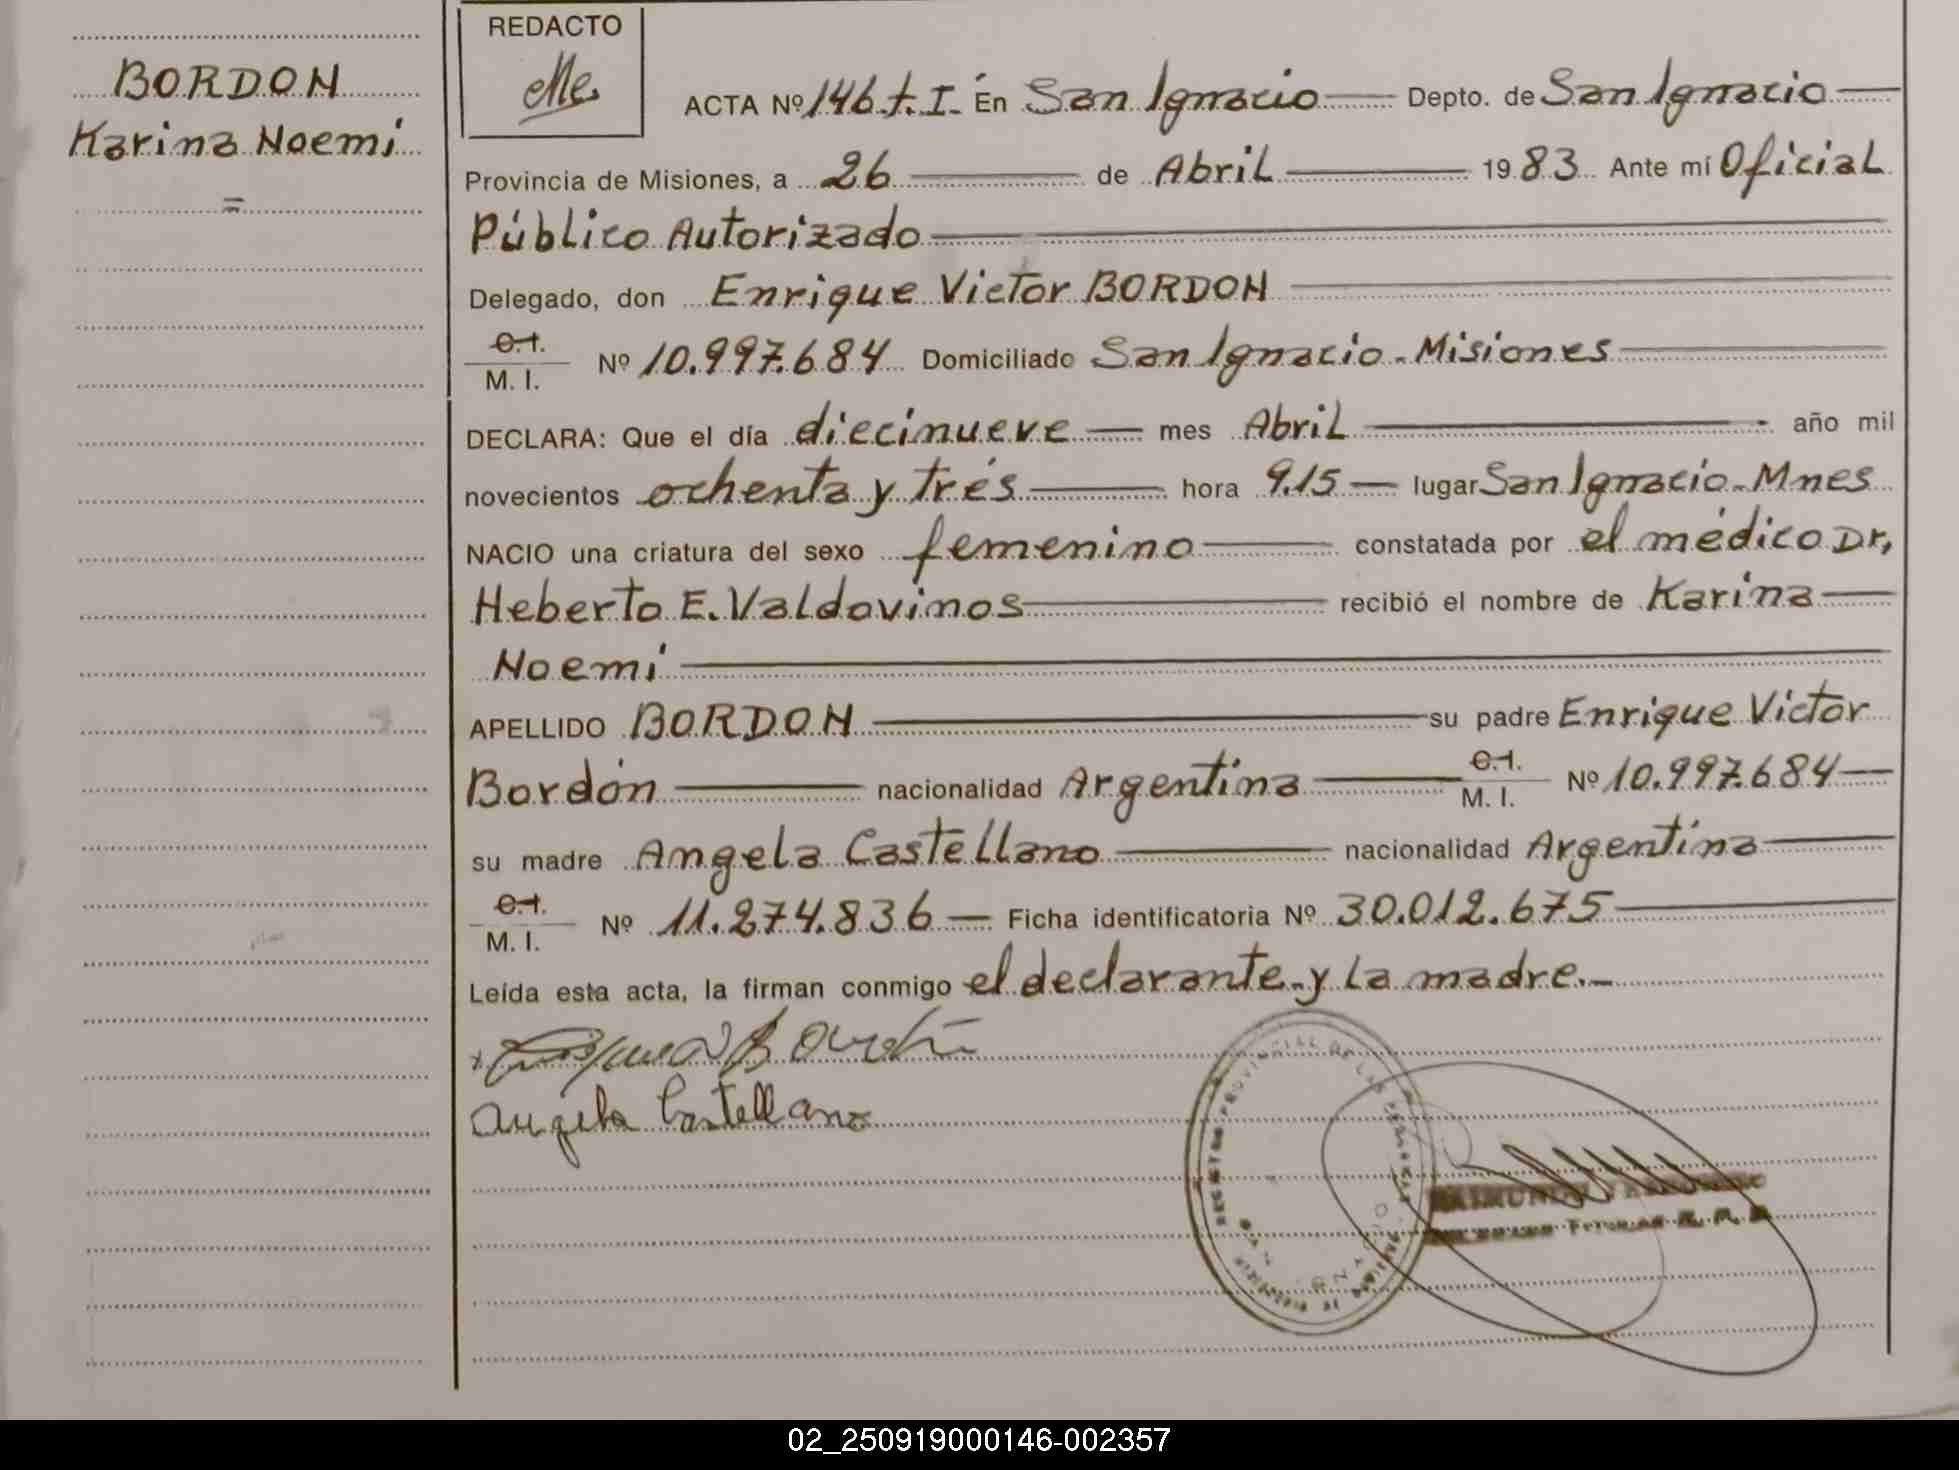 BORDON
Karina Noemí
=
REDACTO
ACTA Nº 146.t.I. En San Ignacio Depto. de San Ignacio
Provincia de Misiones, a 26 de Abril 1983 Ante mí Oficial
Público Autorizado
Delegado, don Enrique Victor BORDON
C.I.
M. I. Nº 10.997.684 Domiciliado San Ignacio. Misiones
DECLARA: Que el día diecinueve mes Abril año mil
novecientos ochenta y trés hora 9.15 lugar San Ignacio. Mnes
NACIO una criatura del sexo femenino constatada por el médico Dr,
Heberto E. Valdovinos recibió el nombre de Karina
Noemí
APELLIDO BORDON su padre Enrique Victor
Bordón nacionalidad Argentina C.I. M. I. Nº 10.997.684
su madre Angela Castellano nacionalidad Argentina
C.I.
M. I. Nº 11.274.836 Ficha identificatoria Nº 30.012.675
Leída esta acta, la firman conmigo el declarante y la madre.
Angela Castellano
REGISTRO PROVINCIAL DE LAS PERSONAS
02_250919000146-002357